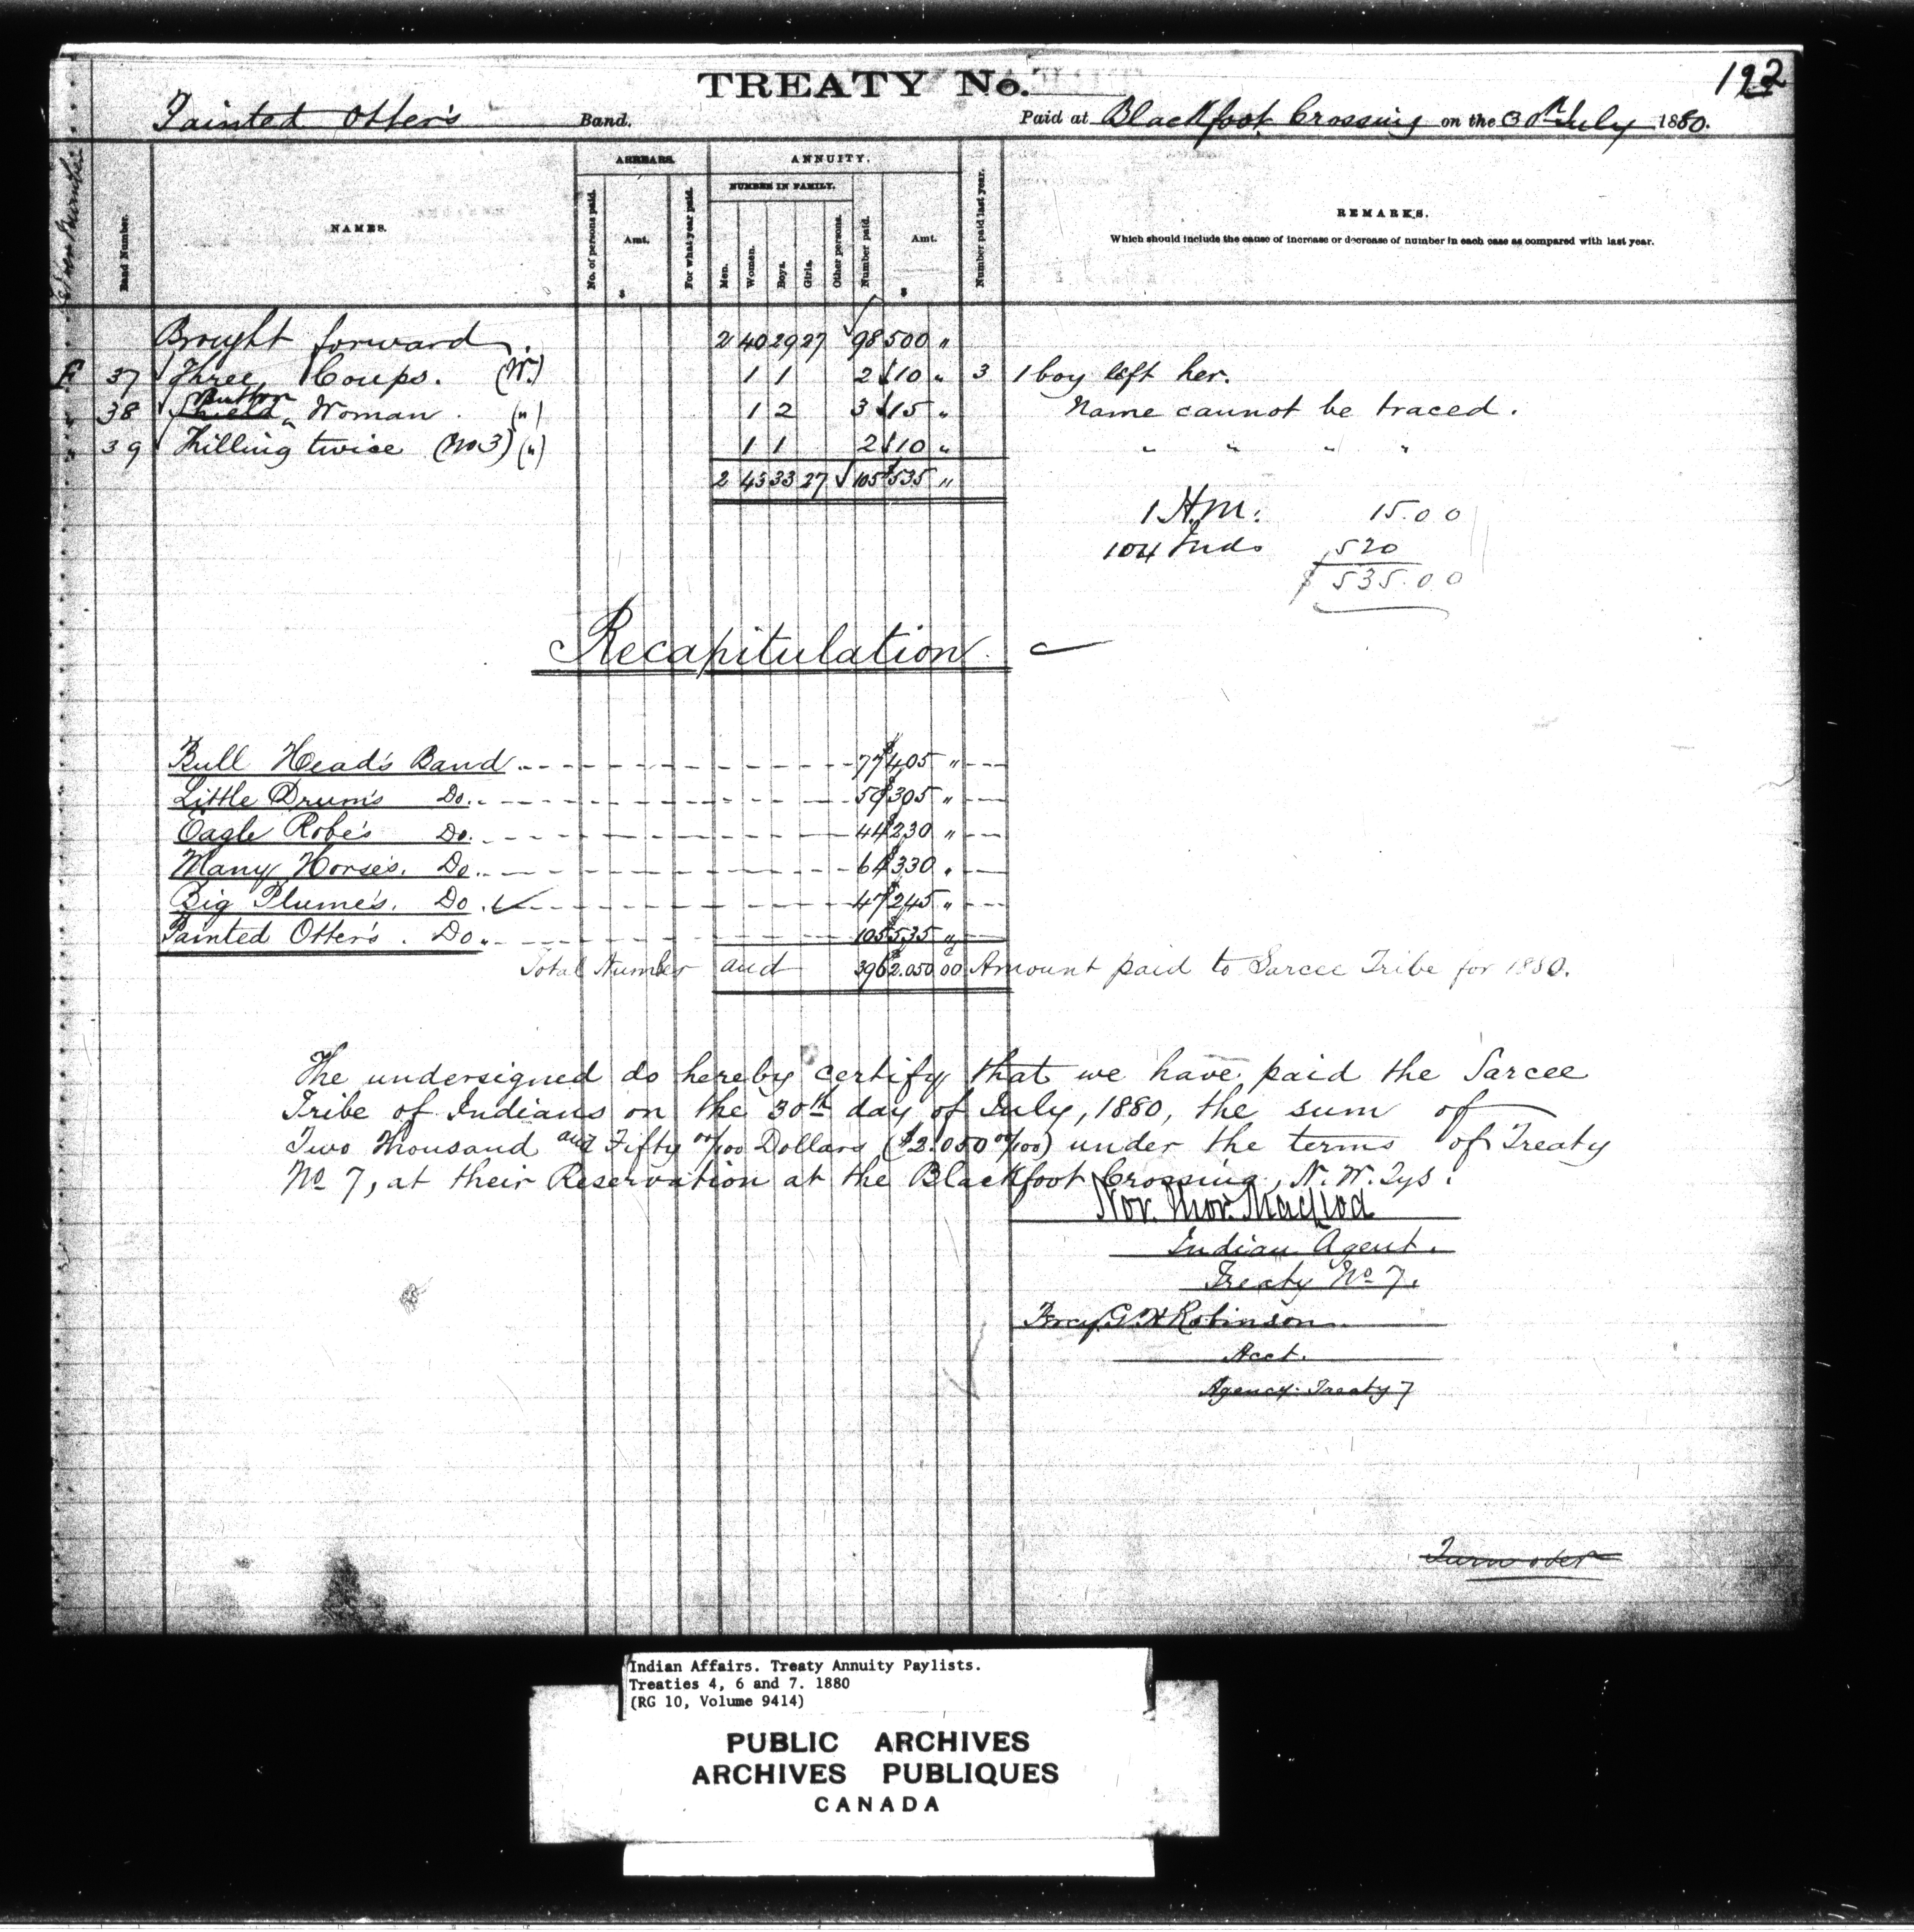 TREATY No.
192
Painted Otter's Band.
Paid at Blackfoot Crossing on the 30th July 1880.
Band Number.
NAMES.
ARREARS.
No. of persons paid.
Amt.
$
For what year paid.
ANNUITY.
NUMBER IN FAMILY.
Men.
Women.
Boys.
Girls.
Other persons.
Number paid.
Amt.
$
Number paid last year.
REMARKS.
Which should include the cause of increase or decrease of number in each case as compared with last year.
Brought forward. 2 40 29 27 98 500 "
37 Three Coups. (W.) 1 1 2 $10 " 3 1 boy left her.
38 Shield Button Woman. (") 1 2 3 $15 " Name cannot be traced.
39 Killing twice (No 3) (") 1 1 2 $10 " " " " "
2 43 33 27 105 $535 "
1 H.M. 15.00
104 Inds 520
$ 535.00
Recapitulation.
Bull Head's Band 77 $405 "
Little Drum's Do. 59 $305 "
Eagle Robe's Do. 44 $230 "
Many Horse's. Do. 64 $330 "
Big Plume's. Do. 47 $245 "
Painted Otter's. Do. 105 $535 "
Total Number and 396 $2.050.00 Amount paid to Sarcee Tribe for 1880.
The undersigned do hereby certify that we have paid the Sarcee
Tribe of Indians on the 30th day of July, 1880, the sum of
Two Thousand and Fifty 00/100 Dollars ($2.050 00/100) under the terms of Treaty
No 7, at their Reservation at the Blackfoot Crossing, N. W. Tys.
Nor. Thos. Macleod
Indian Agent.
Treaty No 7.
Percy G. H Robinson
Acct.
Agency Treaty 7
Turn over
Indian Affairs. Treaty Annuity Paylists.
Treaties 4, 6 and 7. 1880
(RG 10, Volume 9414)
PUBLIC ARCHIVES
ARCHIVES PUBLIQUES
CANADA